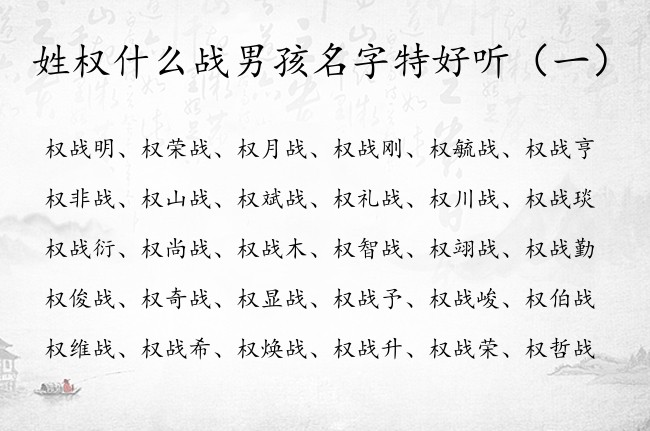 姓权什么战男孩名字特好听（一）
权战明、权荣战、权月战、权战刚、权毓战、权战亨
权非战、权山战、权斌战、权礼战、权川战、权战琰
权战衍、权尚战、权战木、权智战、权翊战、权战勤
权俊战、权奇战、权显战、权战予、权战峻、权伯战
权维战、权战希、权焕战、权战升、权战荣、权哲战